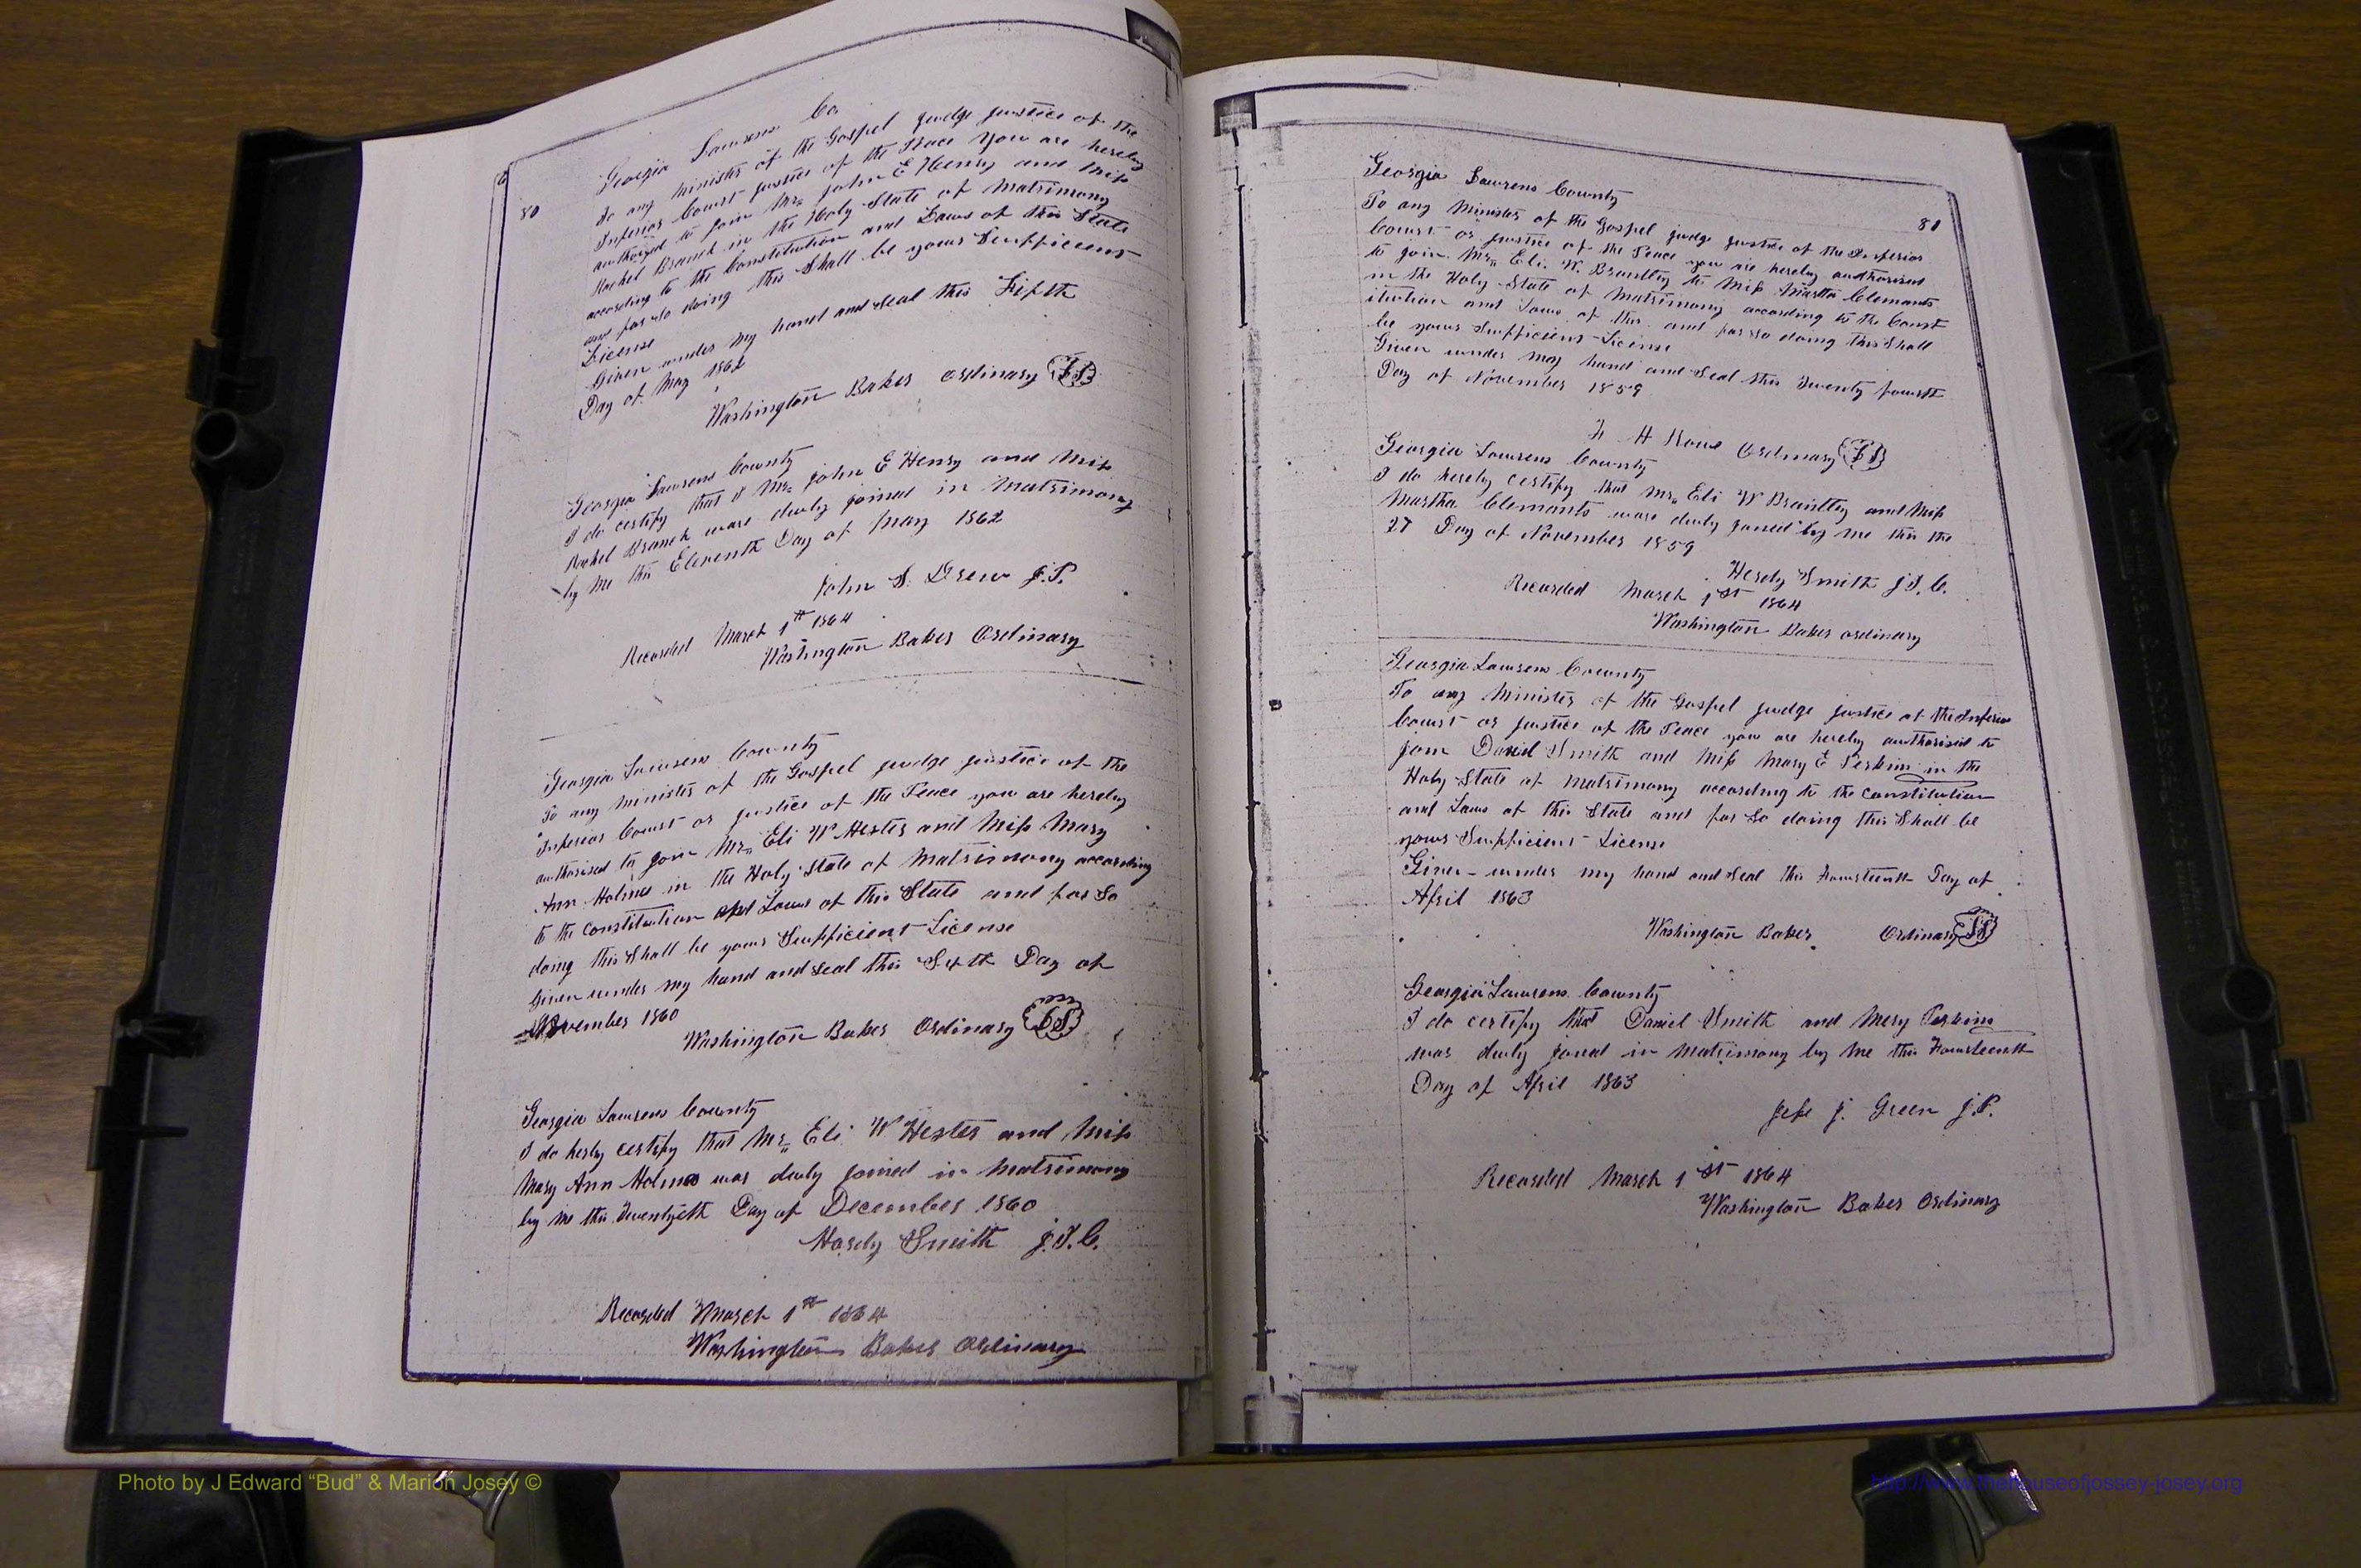 80
Georgia Laurens Co
To any Minister of the Gospel judge justice of the
Inferior Court justice of the Peace You are hereby
authorized to join Mr. John E Henry and Miss
Rachel Branch in the Holy State of Matrimony
according to the Constitution and Laws of this State
and for so doing this Shall be yours Sufficient
License
Given under my hand and seal this Fifth
Day of May 1862
Washington Baker Ordinary LS
Georgia Laurens County
I do certify that Mr. John E Henry and Miss
Rachel Branch ware duly joined in Matrimony
by me this Eleventh Day of May 1862
John S. Drew J.P.
Recorded March 1st 1864
Washington Baker Ordinary
Georgia Laurens County
To any Minister of the Gospel judge justice of the
Inferior Court or justice of the Peace you are hereby
authorised to join Mr. Eli W Hester and Miss Mary
Ann Holmes in the Holy State of Matrimony according
to the Constitution and Laws of this State and for So
doing this Shall be yours Sufficient License
Given under my hand and seal this Day of
November 1860
Washington Baker Ordinary LS
Georgia Laurens County
I do herby certify that Mr. Eli W Hester and Miss
Mary Ann Holmes was duly joined in Matrimony
by me this Day of December 1860
Hardy Smith J.I.C.
Recorded March 1st 1864
Washington Baker Ordinary
81
Georgia Laurens County
To any Minister of the Gospel judge justice of the Inferior
Court or justice of the Peace you are hereby authorised
to join Mr. Eli. W. Brantley to Miss Martha Clemants
in the Holy State of Matrimony according to the Const
itution and Laws of this and for so doing this Shall
be yours Sufficient License
Given under my hand and Seal this Twenty fourth
Day of November 1859
F H Rowe Ordinary LS
Georgia Laurens County
I do hereby certify that Mr. Eli W Brantley and Miss
Martha Clemants ware duly joined by me this the
27 Day of November 1859
Hardy Smith J.I.C.
Recorded March 1st 1864
Washington Baker ordinary
Georgia Laurens County
To any Minister of the Gospel judge justice of the Inferior
Court or justice of the Peace you are hereby authorised to
join Daniel Smith and Miss Mary E Perkins in the
Holy State of matrimony according to the Constitution
and Laws of this State and for So doing this Shall be
yours Sufficient License
Given under my hand and Seal this Fourteenth Day of
April 1863
Washington Baker Ordinary LS
Georgia Laurens County
I do certify that Daniel Smith and Mary Perkins
was duly joned in Matrimony by Me this Fourteenth
Day of April 1863
Jese J. Green J.P.
Recorded March 1st 1864
Washington Baker Ordinary
Photo by J Edward “Bud” & Marion Josey ©
http://www.thehouseofjossey-josey.org